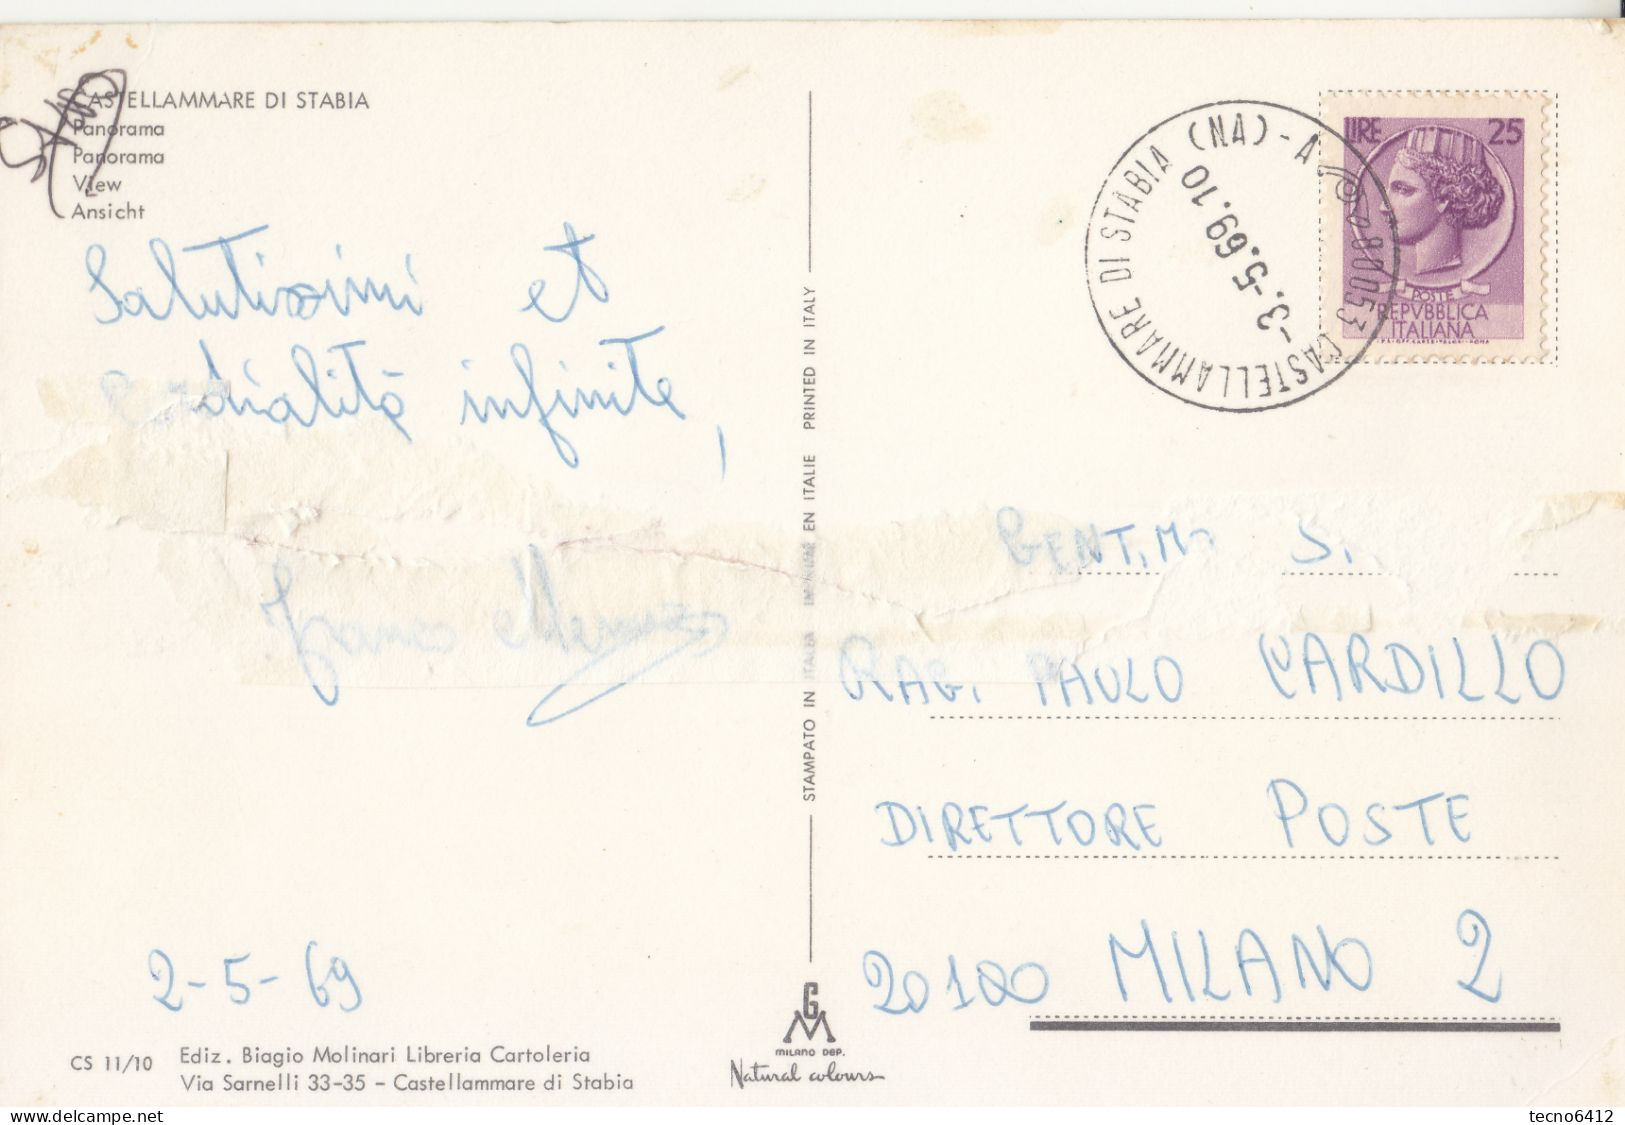 CASTELLAMMARE DI STABIA
Panorama
Panorama
View
Ansicht
Salutissimi et
cordialità infinite,
Franco
2-5-69
CS 11/10
Ediz. Biagio Molinari Libreria Cartoleria
Via Sarnelli 33-35 - Castellammare di Stabia
STAMPATO IN ITALIA IMPRIMÉ EN ITALIE PRINTED IN ITALY
GM
MILANO DEP.
Natural colours
80053 CASTELLAMMARE DI STABIA (NA) - A
-3.-5.69.10
LIRE 25
POSTE
REPVBBLICA
ITALIANA
GENT.MO S.
RAG. PAULO CARDILLO
DIRETTORE POSTE
20100 MILANO 2
tecno6412